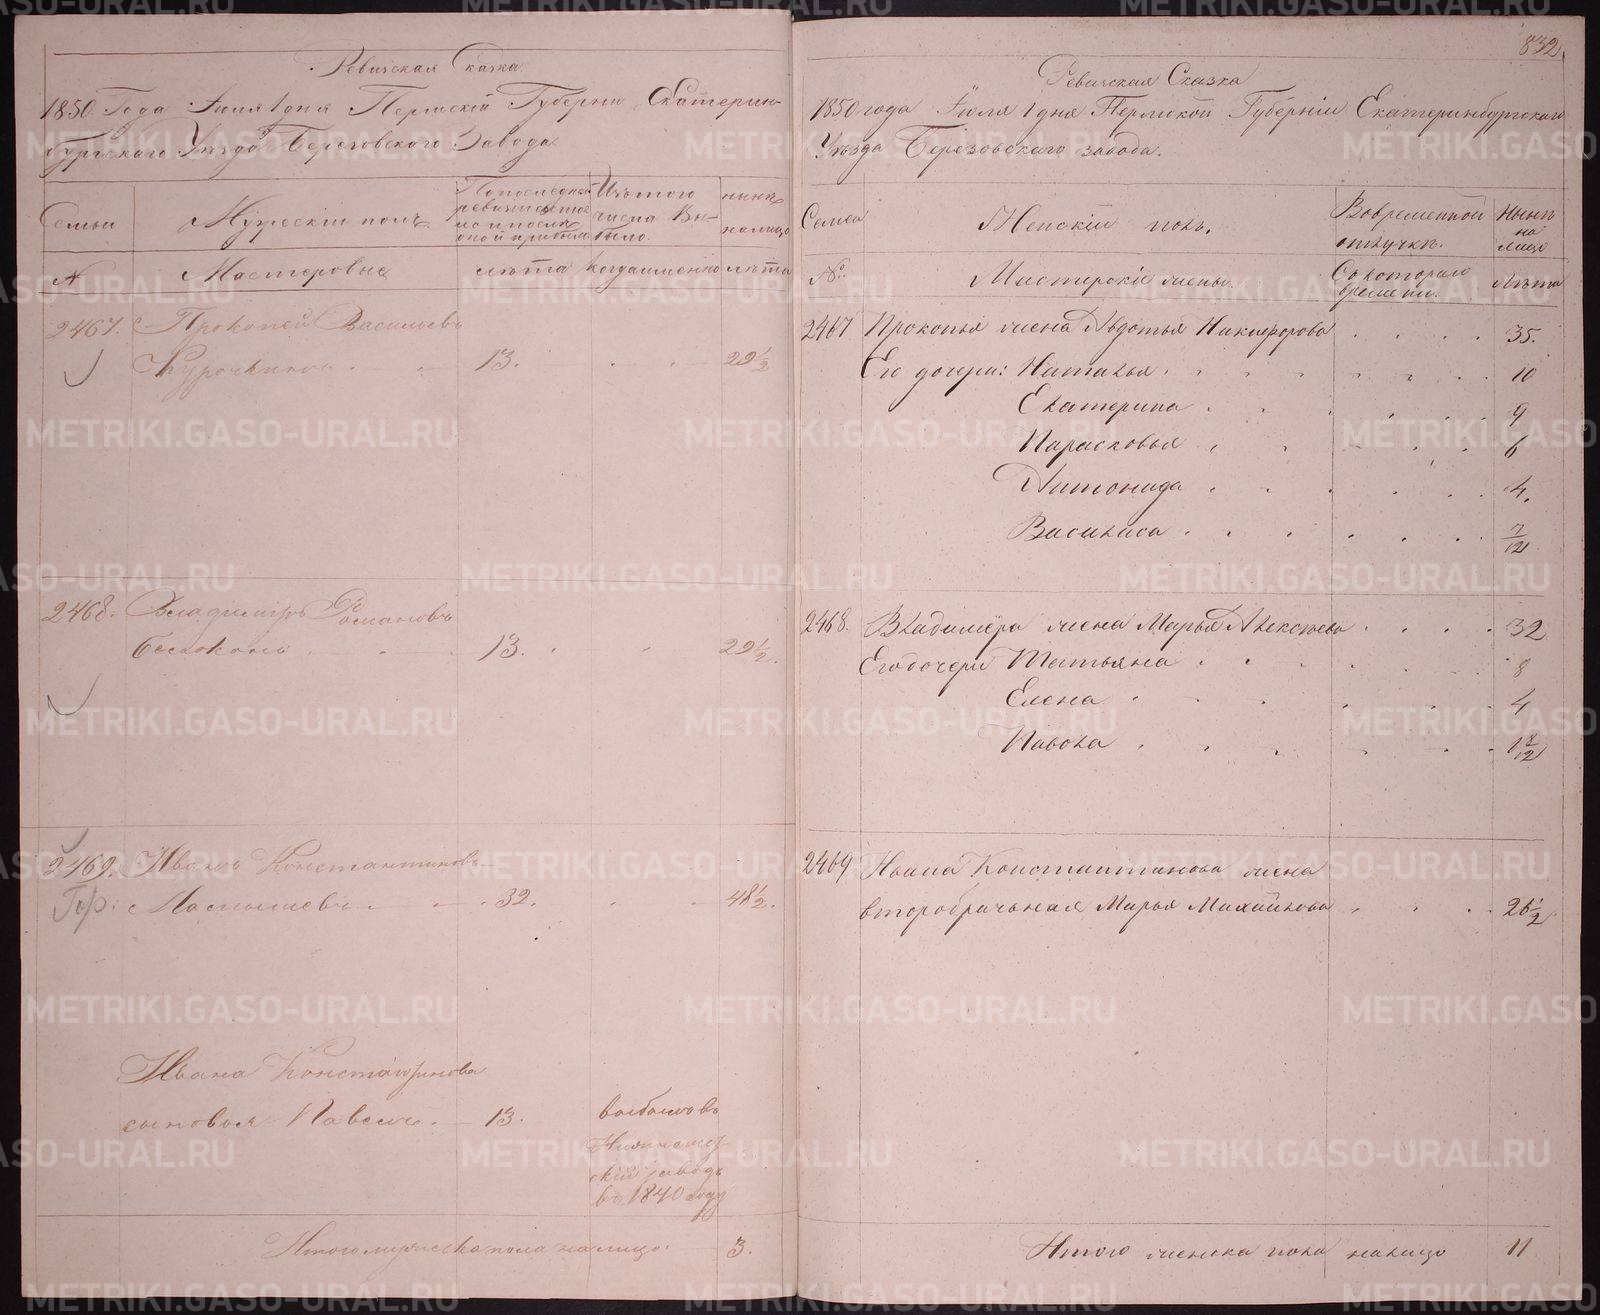 Ревизская Сказка
1850 Года Июля 1 дня Пермской Губерни Екатерин-
бургского Уезда Березовского Завода
Семьи
Мужескій полъ
По последней
ревизіи состоя
ло и после
оной прибыло
Изъ того
числа Вы-
было.
ныне
налицо
№
Мастеровые
лѣта
когда именно
лѣта
2467. Прокопей Васильевъ
Курочкиновъ 13. 29½
2468. Владимиръ Романовъ
Белоконь 13. 29½.
2469. Иванъ Константиновъ
Гор. Маслышевъ 32. 48½.
Ивана Константинова
сыновья Павелъ 13.
выбылъ въ
скій заводъ
въ 1840 году
Итого мужеска пола налицо 3.
832
Ревизская Сказка
1850 года Июля 1 дня Пермской Губерніи Екатеринбургскаго
Уѣзда Березовскаго завода.
Семьи
Женскій полъ.
Вовременной
отлучкѣ.
Нынѣ
на
лицо
№
Мастерскіе жены.
Съ котораго
времени.
Лѣта
2467 Прокопья жена Авдотья Никифорова 35.
Его дочери: Наталья 10
Екатерина 9
Парасковья 6
Антонида 4.
Василиса 7/12
2468. Владимера жена Марья Алексѣева 32
Его дочери Татьяна 8
Елена 4
Павола 1 8/12
2469 Ивана Константинова жена
второбрачьная Марья Михайлова 26½
Итого женска пола налицо 11
METRIKI.GASO-URAL.RU